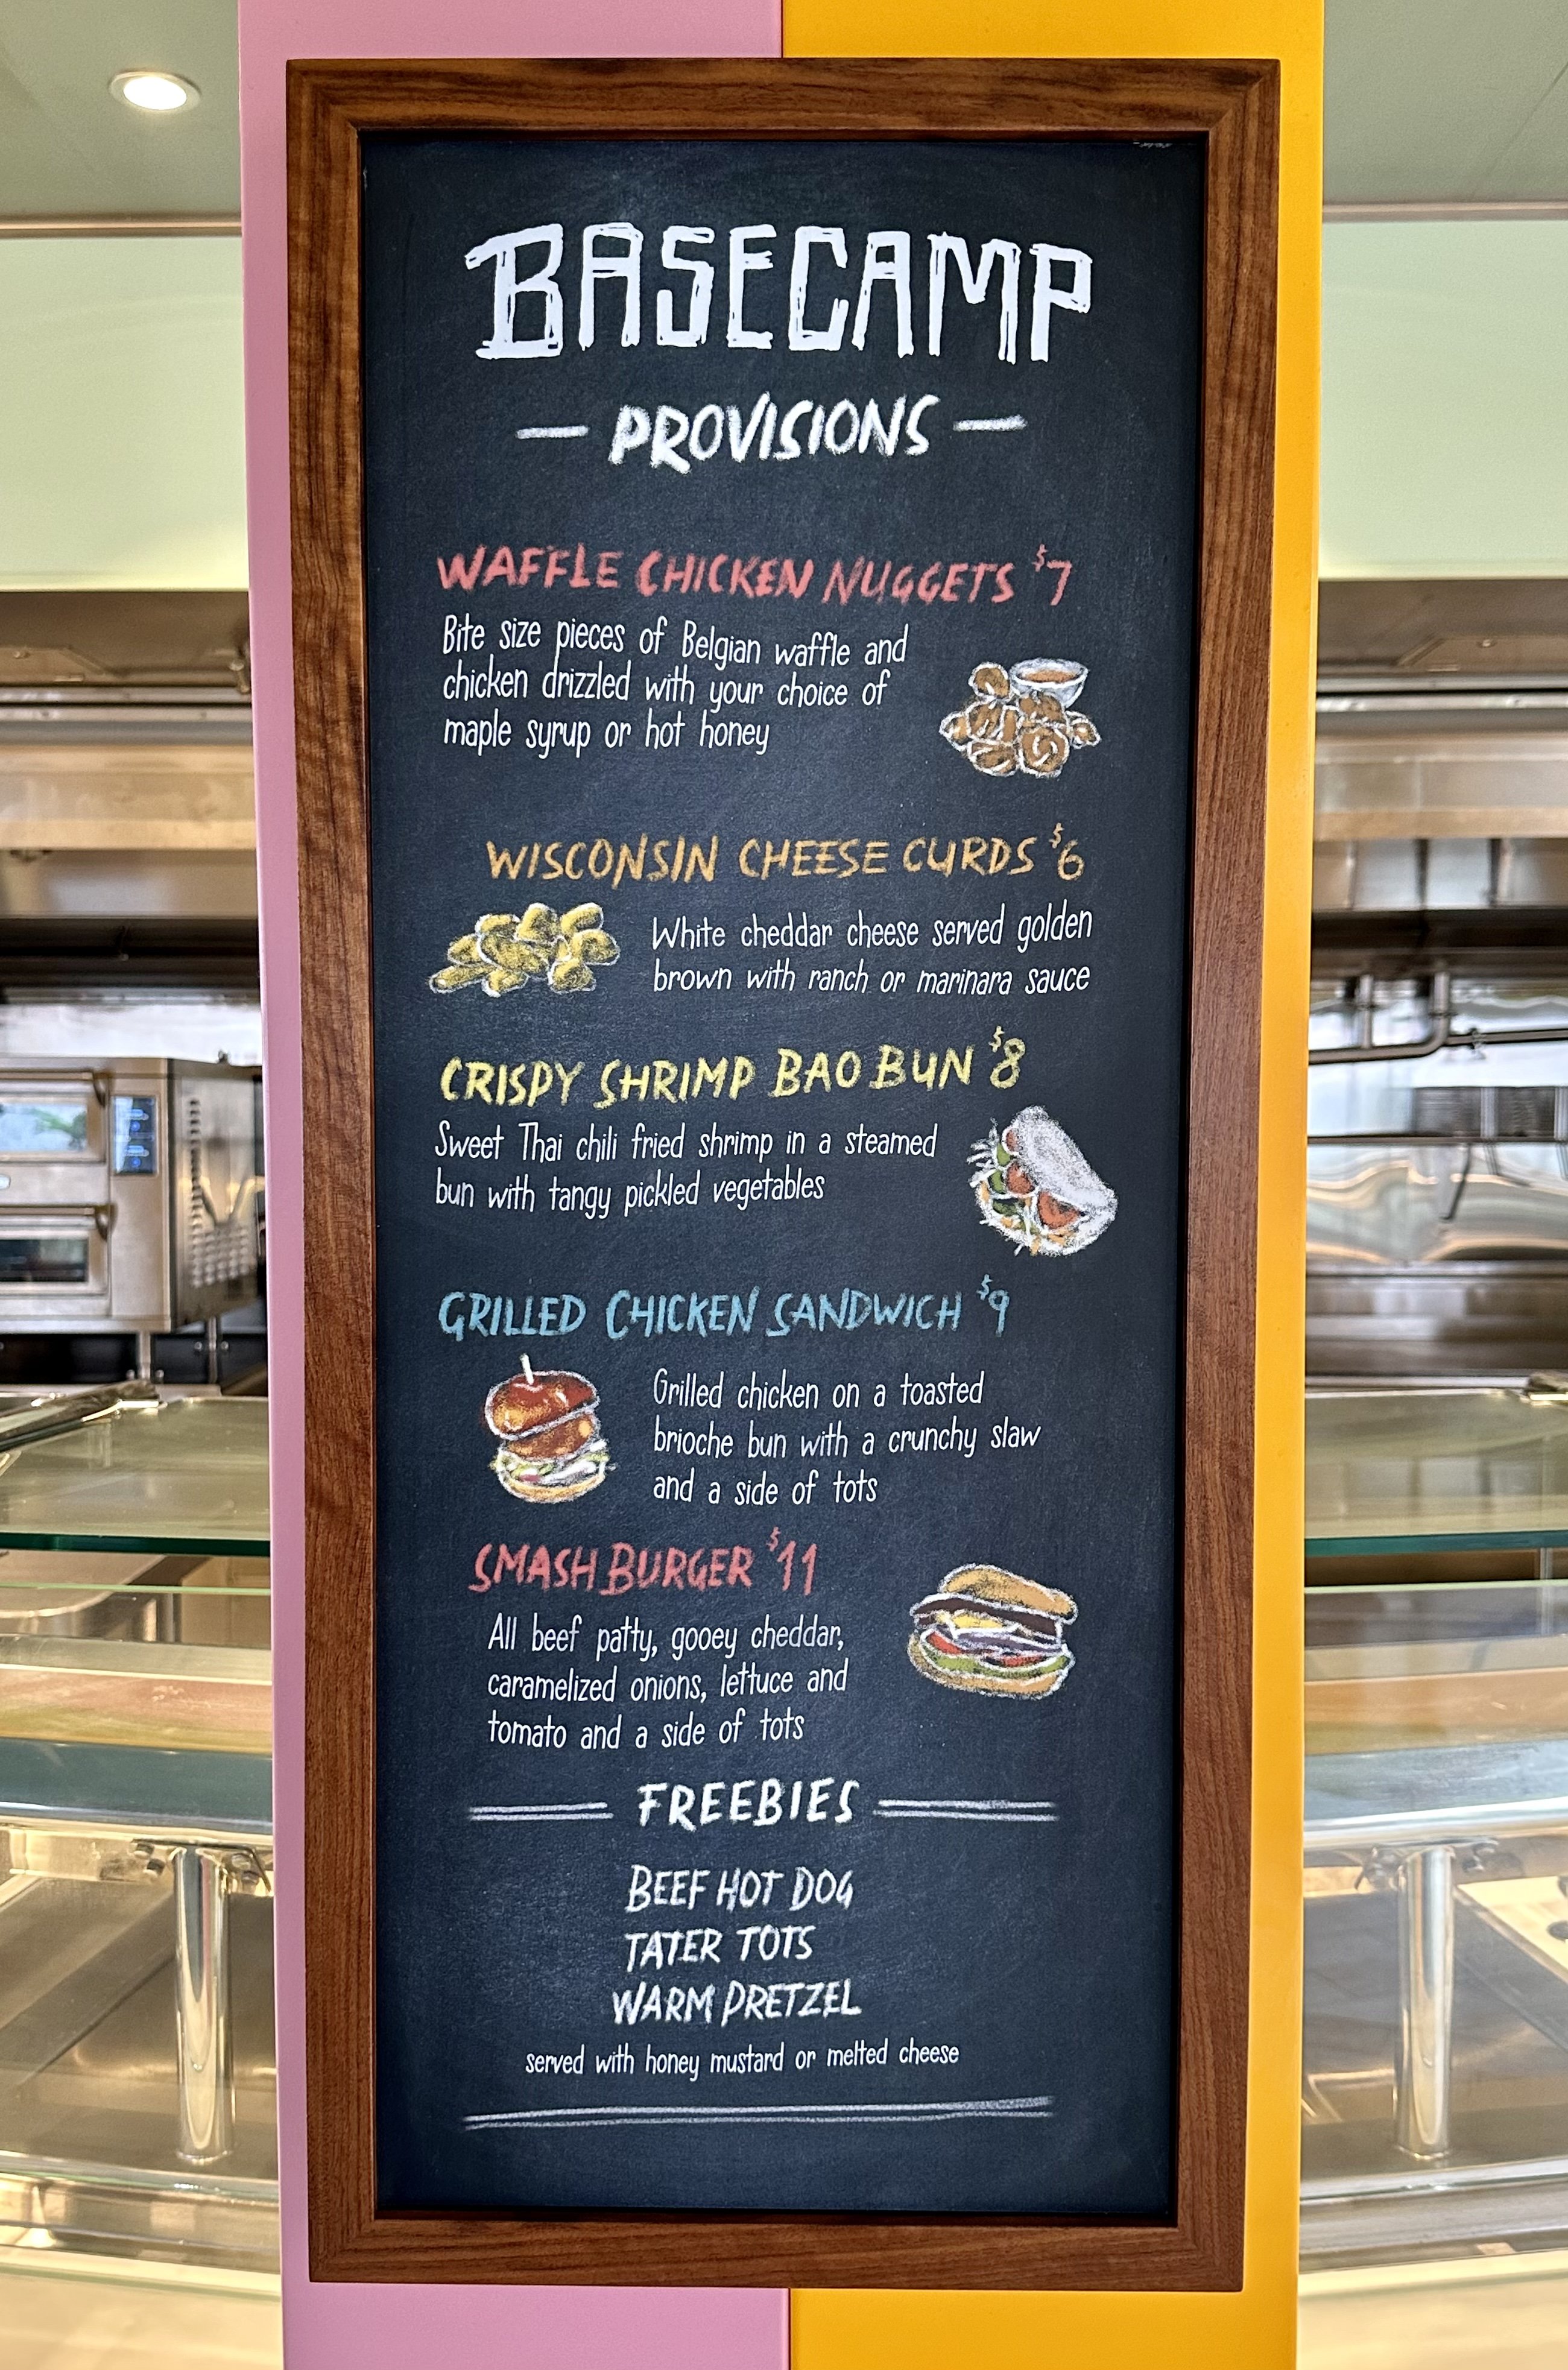 BASECAMP
— PROVISIONS —
WAFFLE CHICKEN NUGGETS $7
Bite size pieces of Belgian waffle and
chicken drizzled with your choice of
maple syrup or hot honey
WISCONSIN CHEESE CURDS $6
White cheddar cheese served golden
brown with ranch or marinara sauce
CRISPY SHRIMP BAO BUN $8
Sweet Thai chili fried shrimp in a steamed
bun with tangy pickled vegetables
GRILLED CHICKEN SANDWICH $9
Grilled chicken on a toasted
brioche bun with a crunchy slaw
and a side of tots
SMASH BURGER $11
All beef patty, gooey cheddar,
caramelized onions, lettuce and
tomato and a side of tots
FREEBIES
BEEF HOT DOG
TATER TOTS
WARM PRETZEL
served with honey mustard or melted cheese